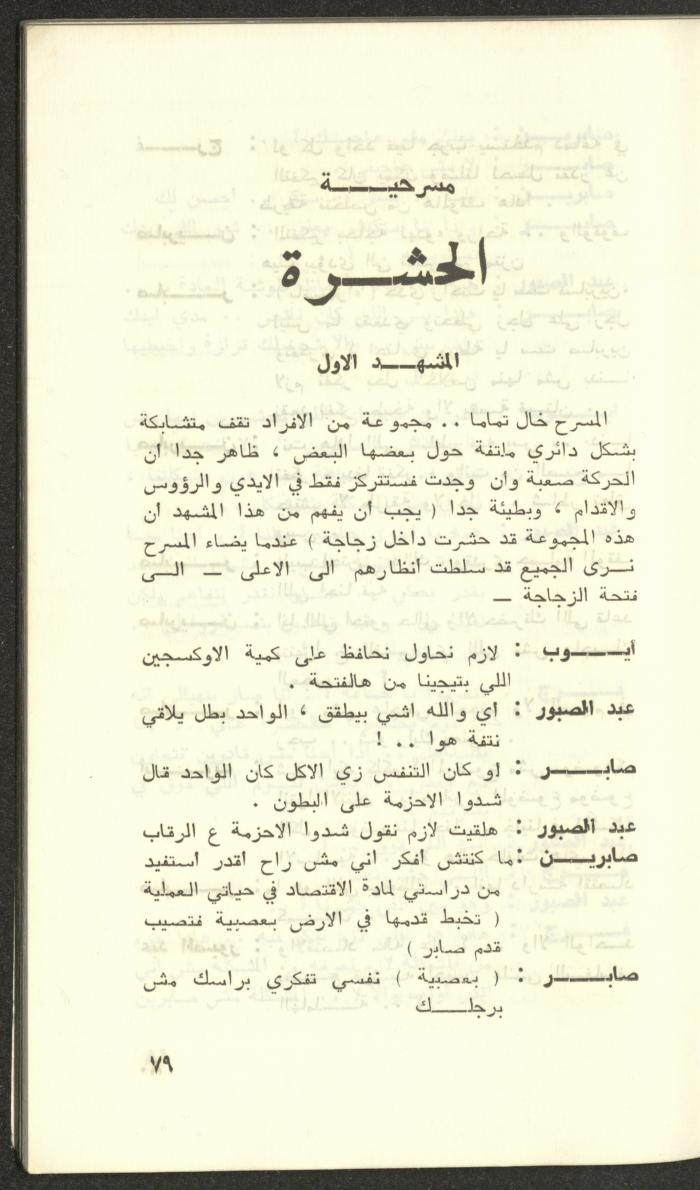 مسرحيـــــة
الحشـــرة
المشهـــد الاول
المسرح خال تماما .. مجموعة من الافراد تقف متشابكة
بشكل دائري ملتفة حول بعضها البعض ، ظاهر جدا ان
الحركة صعبة وان وجدت فستتركز فقط في الايدي والرؤوس
والاقدام ، وبطيئة جدا ( يجب ان يفهم من هذا المشهد ان
هذه المجموعة قد حشرت داخل زجاجة ) عندما يضاء المسرح
نـــرى الجميع قد سلطت انظارهم الى الاعلى ــ الـــى
فتحة الزجاجة ــ
أيـــــوب : لازم نحاول نحافظ على كمية الاوكسجين
اللي بتيجينا من هالفتحة .
عبد الصبور : اي والله اشي بيطقق ، الواحد بطل يلاقي
نتفة هوا .. !
صابــــــر : لو كان التنفس زي الاكل كان الواحد قال
شدوا الاحزمة على البطون .
عبد الصبور : هلقيت لازم نقول شدوا الاحزمة ع الرقاب
صابريــــن : ما كنتش افكر اني مش راح اقدر استفيد
من دراستي لمادة الاقتصاد في حياتي العملية
( تخبط قدمها في الارض بعصبية فتصيب
قدم صابر )
صابــــــر : ( بعصبية ) نفسي تفكري براسك مش
برجلــــك
٧٩